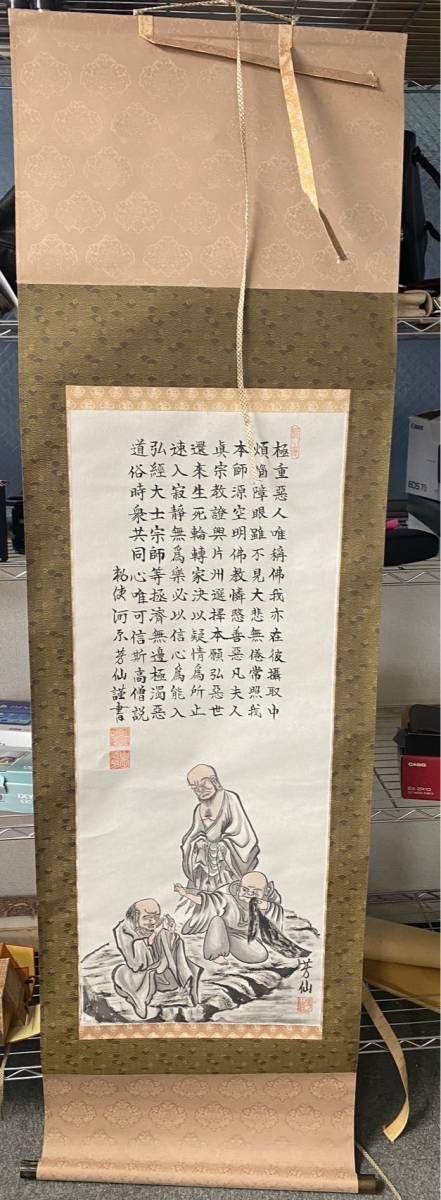 極重惡人唯稱佛我亦在彼攝取中
煩惱障眼雖不見大悲無倦常照我
本師源空明佛教憐愍善惡凡夫人
眞宗教證興片州選擇本願弘惡世
還來生死輪轉家決以疑情爲所止
速入寂靜無爲樂必以信心爲能入
弘經大士宗師等拯濟無邊極濁惡
道俗時衆共同心唯可信斯高僧説
勅使河原芳仙謹書
芳仙
Canon
CASIO
IXY